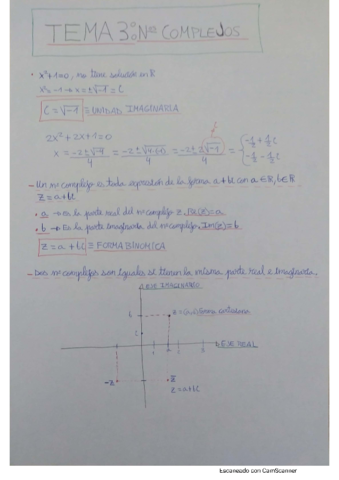 TEMA 3: Nos COMPLEJOS
• x²+1=0, no tiene solución en R
x²=-1 → x=±√-1 = i
i=√-1 ≡ UNIDAD IMAGINARIA
2x²+2x+1=0
x = (-2±√-4)/4 = = (-2±2√-1)/4 = { -1/2 + 1/2 i
-1/2 - 1/2 i
- Un nº complejo es toda expresión de la forma a+bi con a∈R, b∈R
Z=a+bi
• a → Es la parte real del nº complejo z, Re(z)=a
• b → Es la parte imaginaria del nº complejo, Im(z)=b
Z=a+bi ≡ FORMA BINÓMICA
- Dos nº complejos son iguales si tienen la misma parte real e imaginaria.
EJE IMAGINARIO
EJE REAL
-Z
Z̄
Z=a+bi
Escaneado con CamScanner